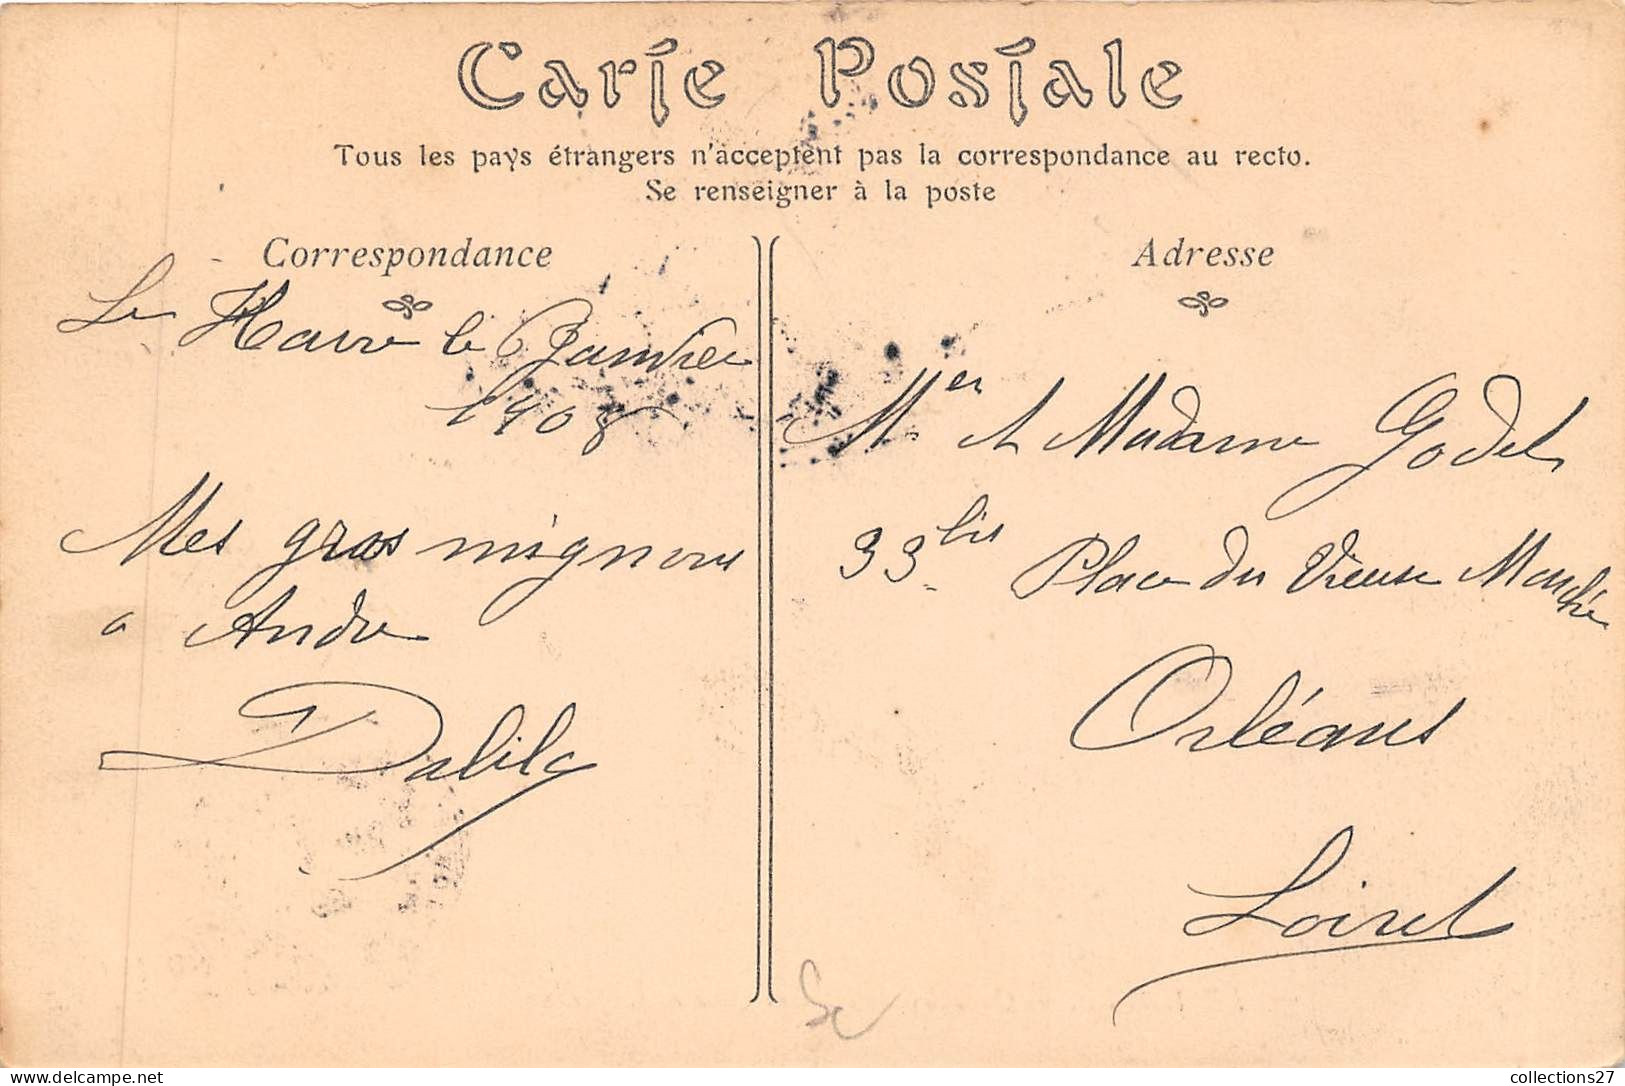 Carte Postale
Tous les pays étrangers n'acceptent pas la correspondance au recto.
Se renseigner à la poste
Correspondance
Le Havre le Janvier
1908
Mes gros mignons
a Andre
Dalila
Adresse
Mer et Madame Godel
33 bis Place du Vieux Marché
Orléans
Loiret
collections27